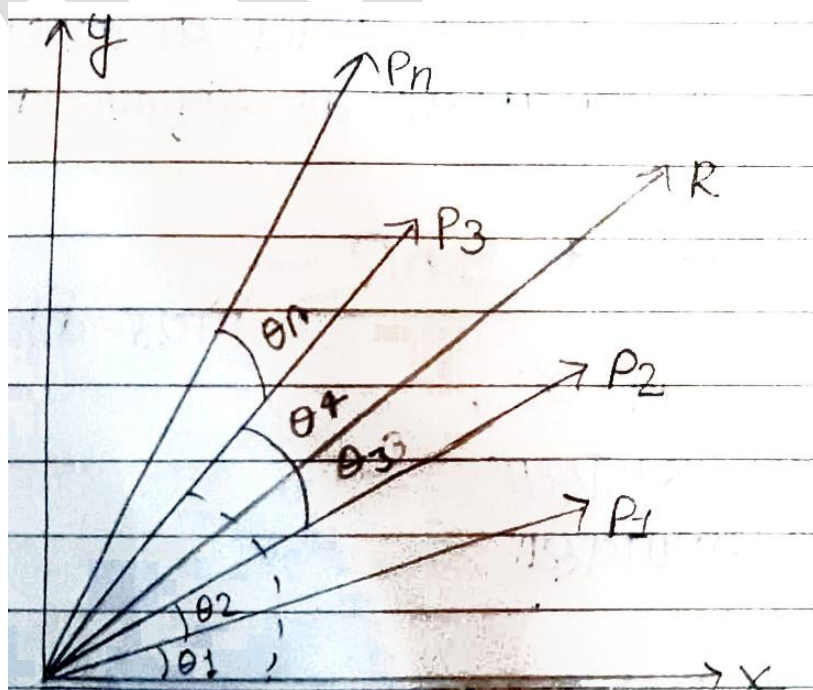 y
Pn
R
P3
θn
P2
θ4
θ3
P1
θ2
θ1
x